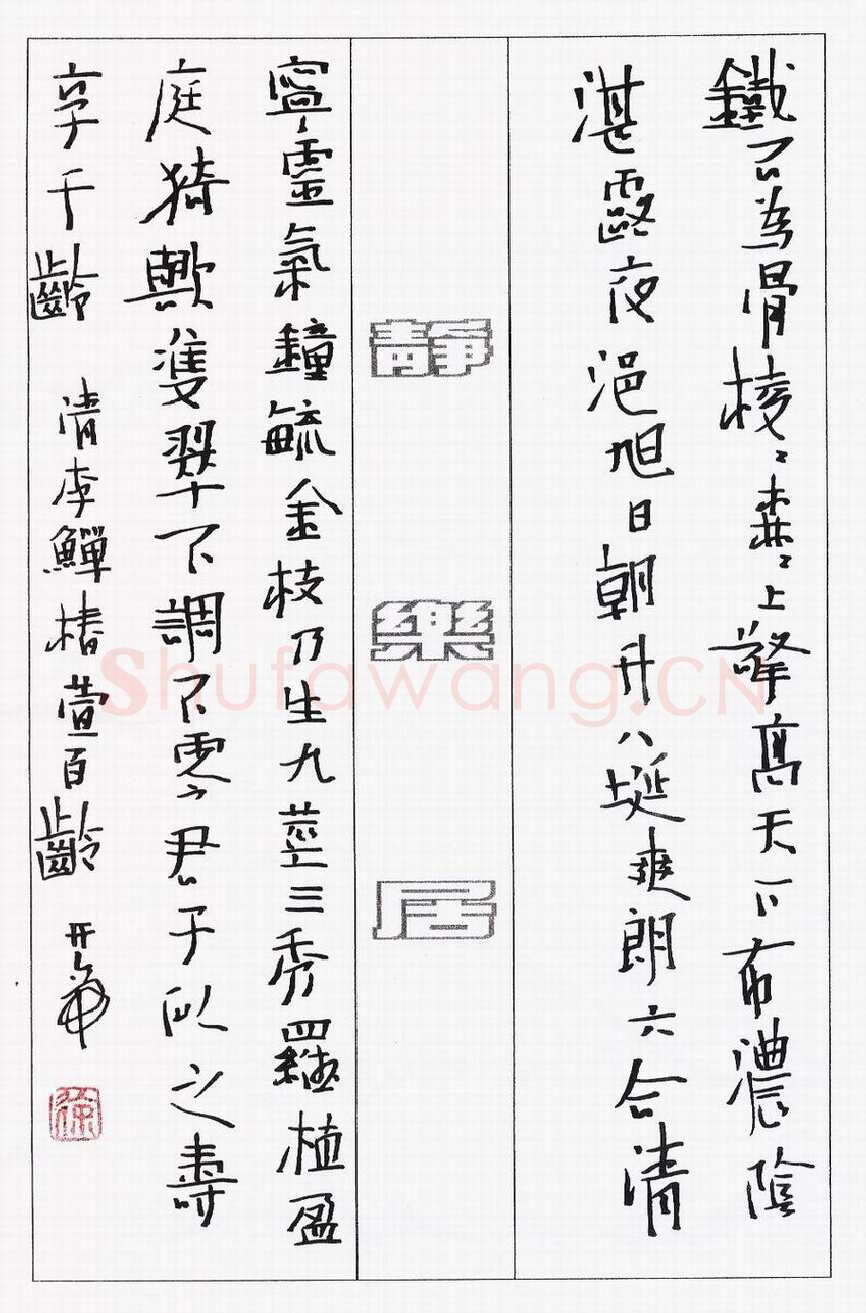 鐵石為骨棱〻森〻上擎高天下布濃陰
湛露夜浥旭日朝升八埏爽朗六合清
靜樂居
寧靈氣鐘毓金枝乃生九莖三秀羅植盈
庭猗歟雙翠不調不零君子以之壽
享千齡 清李鱓椿萱百齡
徐
Shufawang.CN